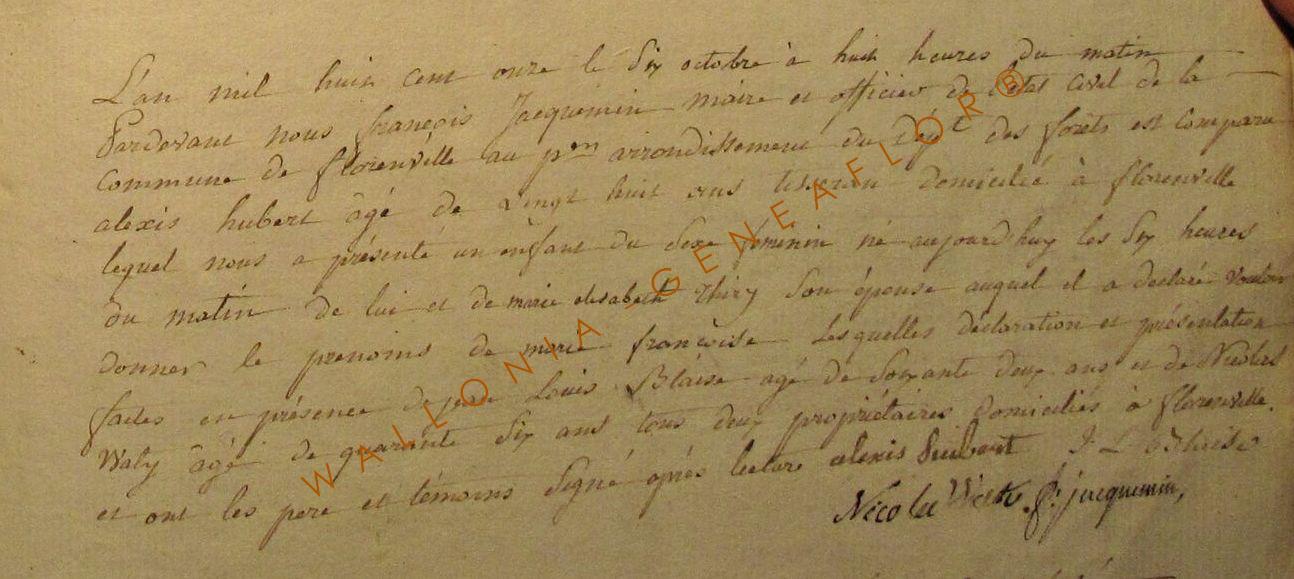 L'an mil huit cent onze le Six octobre à huit heures du matin
Pardevant nous françois Jacquemin maire et officier de l'état Civil de la
Commune de florenville au p.en arrondissement du Dép.t des forêts est Comparu
alexis hubert âgé de vingt huit ans tisseran domicilié à florenville
lequel nous a présenté un enfant du Sexe feminin né aujourd huy les Six heures
du matin de lui et de marie elisabeth thiry Son épouse auquel il a déclaré vouloir
donner le prenoms de marie françoise Lesquelles déclaration et présentation
faites en présence de Louis Blaise agé de Soixante deux ans et de Nicolas
Waly âgé de quarante Six ans tous deux propriétaires domiciliés à florenville.
et ont les pere et témoins Signé après lecture alexis huibert J L Blaise
Nicola f: jacquemin,
WALLONIA GENEAFLOR®